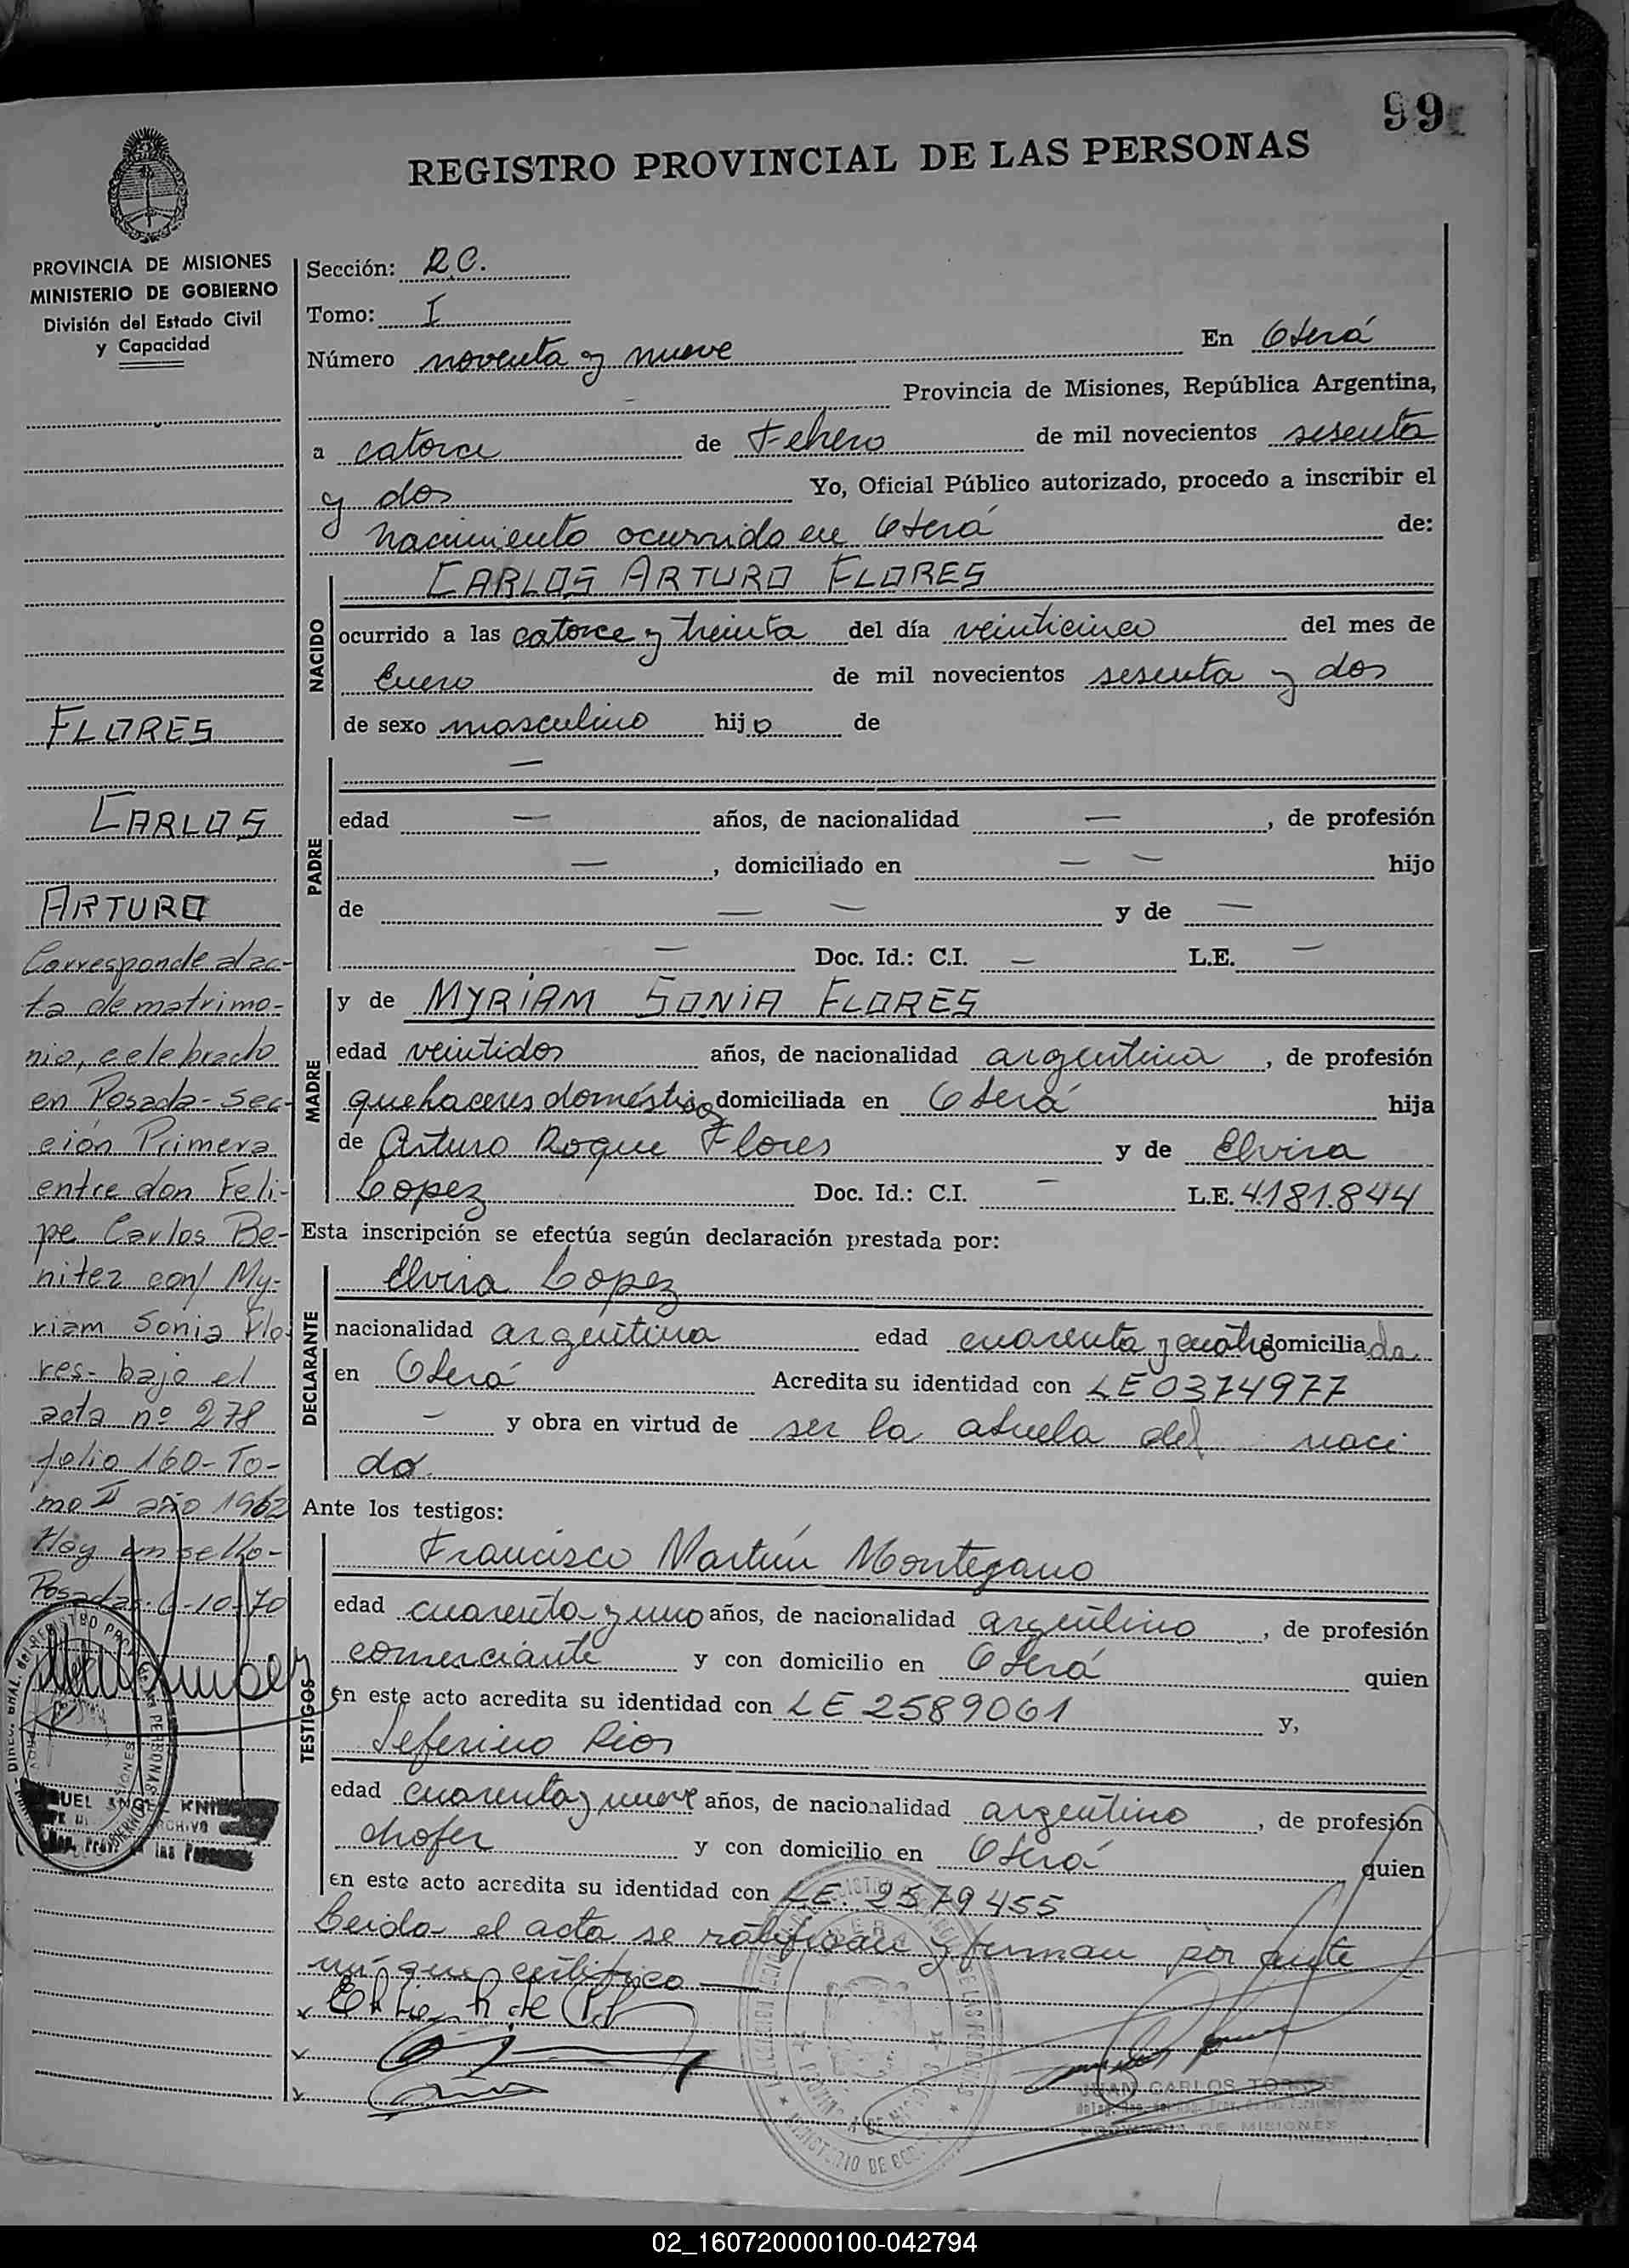 99
REGISTRO PROVINCIAL DE LAS PERSONAS
PROVINCIA DE MISIONES
MINISTERIO DE GOBIERNO
División del Estado Civil
y Capacidad
FLORES
CARLOS
ARTURO
Corresponde al ac-
ta de matrimo-
nio, celebrado
en Posada - Sec-
ción Primera
entre don Feli-
pe Carlos Be-
nitez con/ My-
riam Sonia Flo-
res - bajo el
acta nº 278
folio 160 - To-
mo II año 1962
Hay un sello-
Posadas. 6-10-70
Sección: R.C.
Tomo: I
Número noventa y nueve En Oberá
Provincia de Misiones, República Argentina,
a catorce de Febrero de mil novecientos sesenta
y dos Yo, Oficial Público autorizado, procedo a inscribir el
nacimiento ocurrido en Oberá de:
NACIDO
CARLOS ARTURO FLORES
ocurrido a las catorce y treinta del día veinticinco del mes de
Enero de mil novecientos sesenta y dos
de sexo masculino hijo de
PADRE
—
edad — años, de nacionalidad — , de profesión
— , domiciliado en — — hijo
de — — y de —
— Doc. Id.: C.I. — L.E. —
MADRE
y de MYRIAM SONIA FLORES
edad veintidos años, de nacionalidad argentina , de profesión
quehaceres domésticos domiciliada en Oberá hija
de Arturo Roque Flores y de Elvira
Lopez Doc. Id.: C.I. — L.E. 4.181.844
Esta inscripción se efectúa según declaración prestada por:
DECLARANTE
Elvira Lopez
nacionalidad argentina edad cuarenta y cuatro domiciliada
en Oberá Acredita su identidad con LE 0374977
— y obra en virtud de ser la abuela del naci
do.
Ante los testigos:
TESTIGOS
Francisco Martín Montegano
edad cuarenta y uno años, de nacionalidad argentino , de profesión
comerciante y con domicilio en Oberá quien
en este acto acredita su identidad con LE 2589061 y,
Seferino Rios
edad cuarenta y nueve años, de nacionalidad argentino , de profesión
chofer y con domicilio en Oberá quien
en este acto acredita su identidad con LE 2579455
Leida el acta se ratifican y firman por ante
mí que certifico —
JUAN CARLOS TORRES
PROVINCIA DE MISIONES
02_160720000100-042794